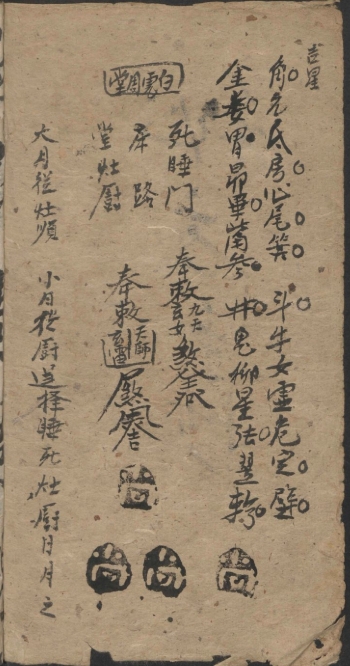 吉星
角亢氐房心尾箕 斗牛女虚危室壁
奎娄胃昴畢觜參 井鬼柳星張翌軫
白虎周堂
死睡门
床路
堂灶厨
奉敕九天玄女煞
奉敕天師
大月從灶順 小月從厨逆择睡死灶厨日月之